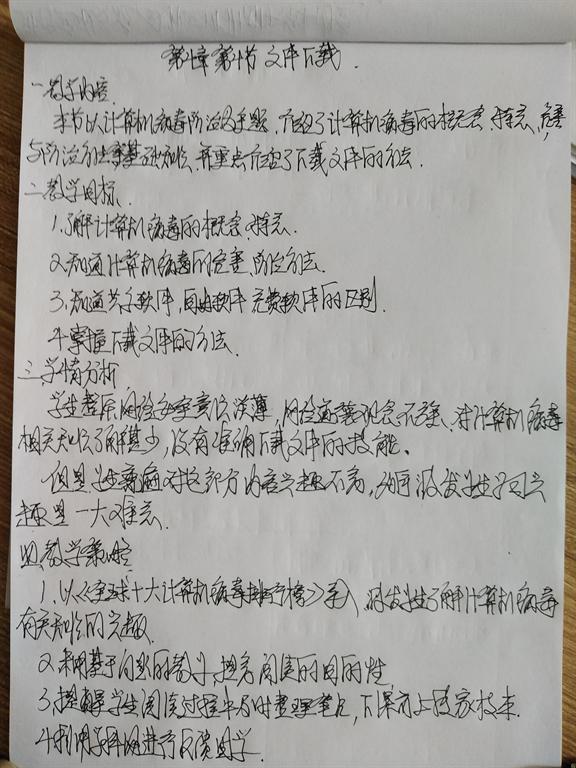 第1章第1节 文件下载
一 教学内容
本节以计算机病毒防治为主题,介绍了计算机病毒的概念、特点、危害
与防治方法等基础知识,并重点介绍了下载文件的方法.
二 教学目标
1.了解计算机病毒的概念、特点.
2.知道计算机病毒的危害、防治方法.
3.知道共享软件,自由软件 免费软件的区别.
4.掌握下载文件的方法.
三 学情分析
学生普遍网络安全意识淡薄,网络道德观念不强、对计算机病毒
相关知识了解甚少,没有准确下载文件的技能.
但是学生普遍对这部分内容兴趣不高,如何激发学生学习兴
趣是一大难点.
四 教学策略
1.以《全球十大计算机病毒排行榜》导入,激发学生了解计算机病毒
有关知识的兴趣.
2.采用基于问题的教学,提高阅读的目的性.
3.提醒学生阅读过程中及时整理笔记,下课前上传家校本.
4.利用学科网进行反馈